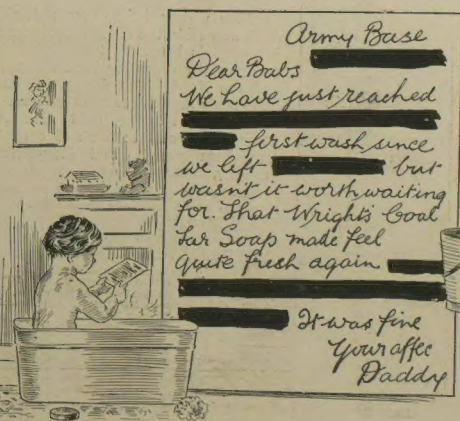 Army Base
Dear Babs
We have just reached
first wash since
we left but
wasn't it worth waiting
for. That Wright's Coal
Tar Soap made feel
quite fresh again
It was fine
Your affec
Daddy